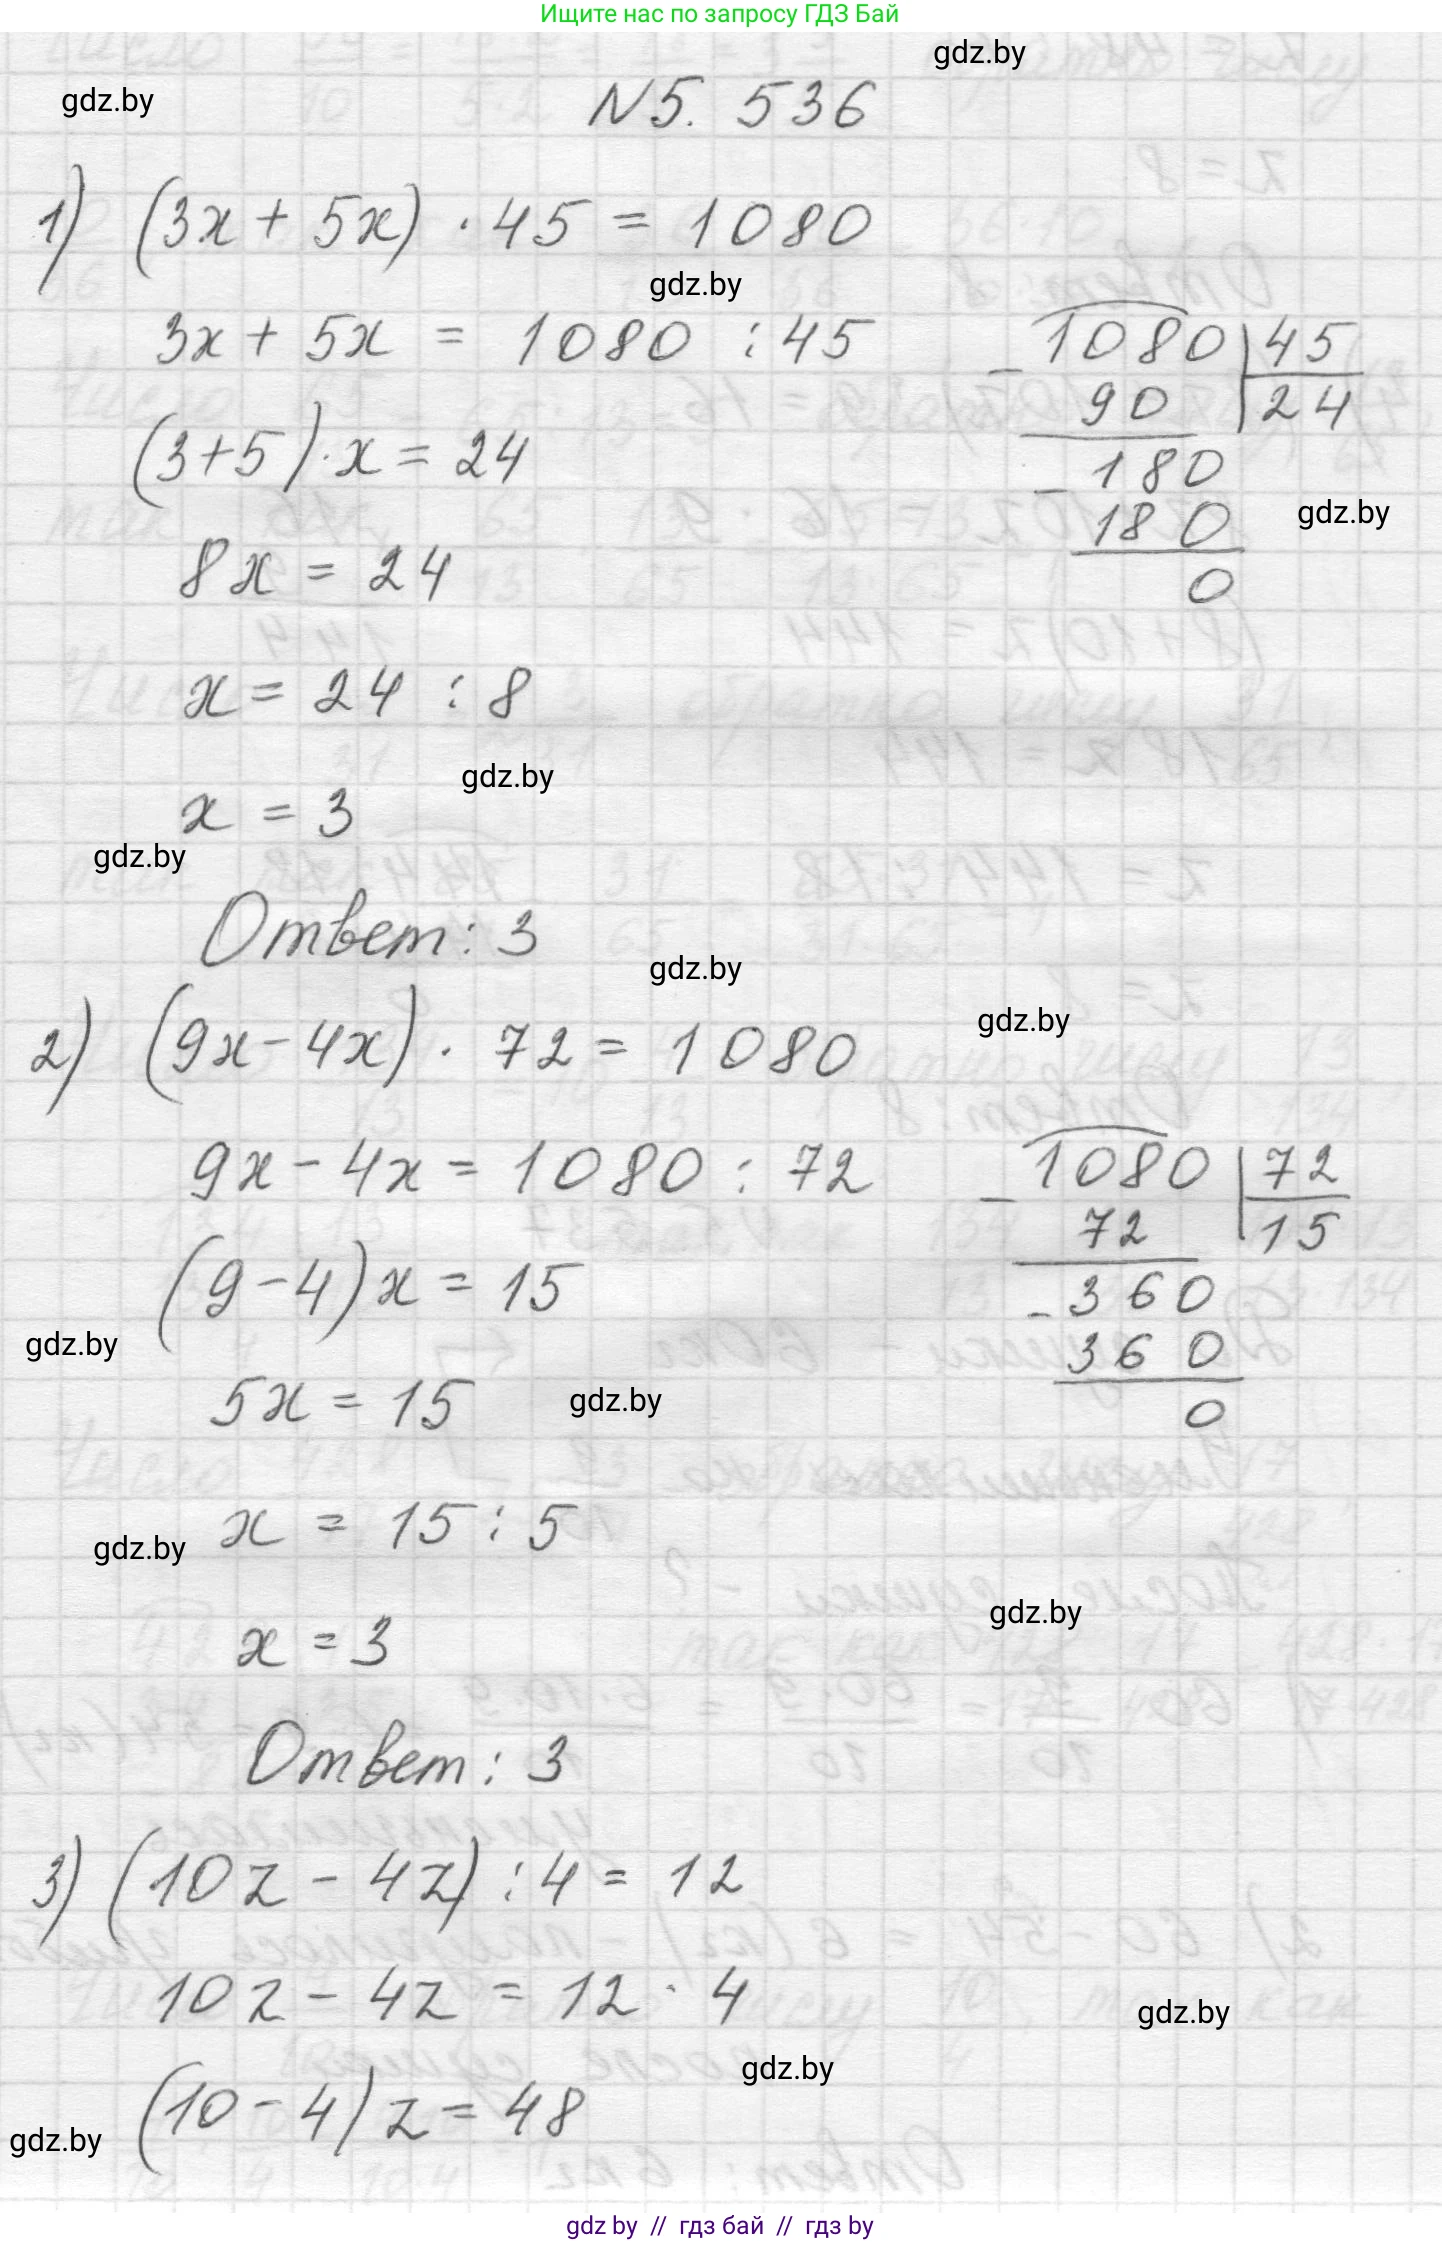 Ищите нас по запросу ГДЗ Бай
gdz.by
gdz.by
N 5. 536
1) (3x + 5x) · 45 = 1080
gdz.by
3x + 5x = 1080 : 45
(3+5)·x = 24
8x = 24
x = 24 : 8
1080 45
- 90 24
- 180
180
0
gdz.by
gdz.by
x = 3
gdz.by
Ответ: 3
gdz.by
gdz.by
2) (9x - 4x) · 72 = 1080
9x - 4x = 1080 : 72
(9 - 4)x = 15
1080 72
- 72 15
- 360
360
0
gdz.by
5x = 15
gdz.by
x = 15 : 5
gdz.by
gdz.by
x = 3
Ответ: 3
3) (10z - 4z) : 4 = 12
10z - 4z = 12 · 4
gdz.by
gdz.by
(10 - 4)z = 48
gdz.by
gdz by // гдз бай // гдз by